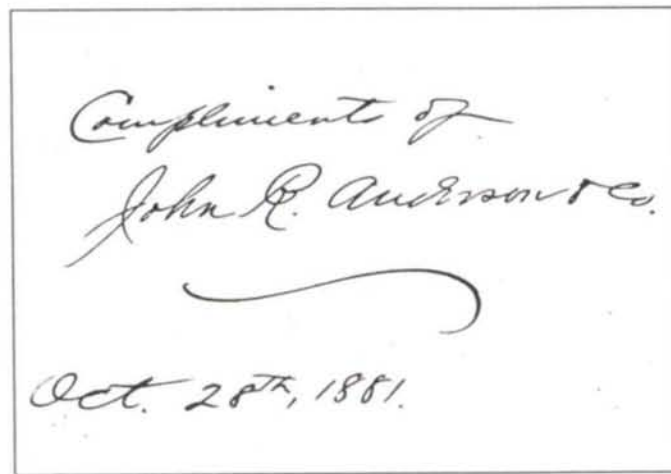 Compliments of
John R. Anderson & Co.
Oct. 28th, 1881.